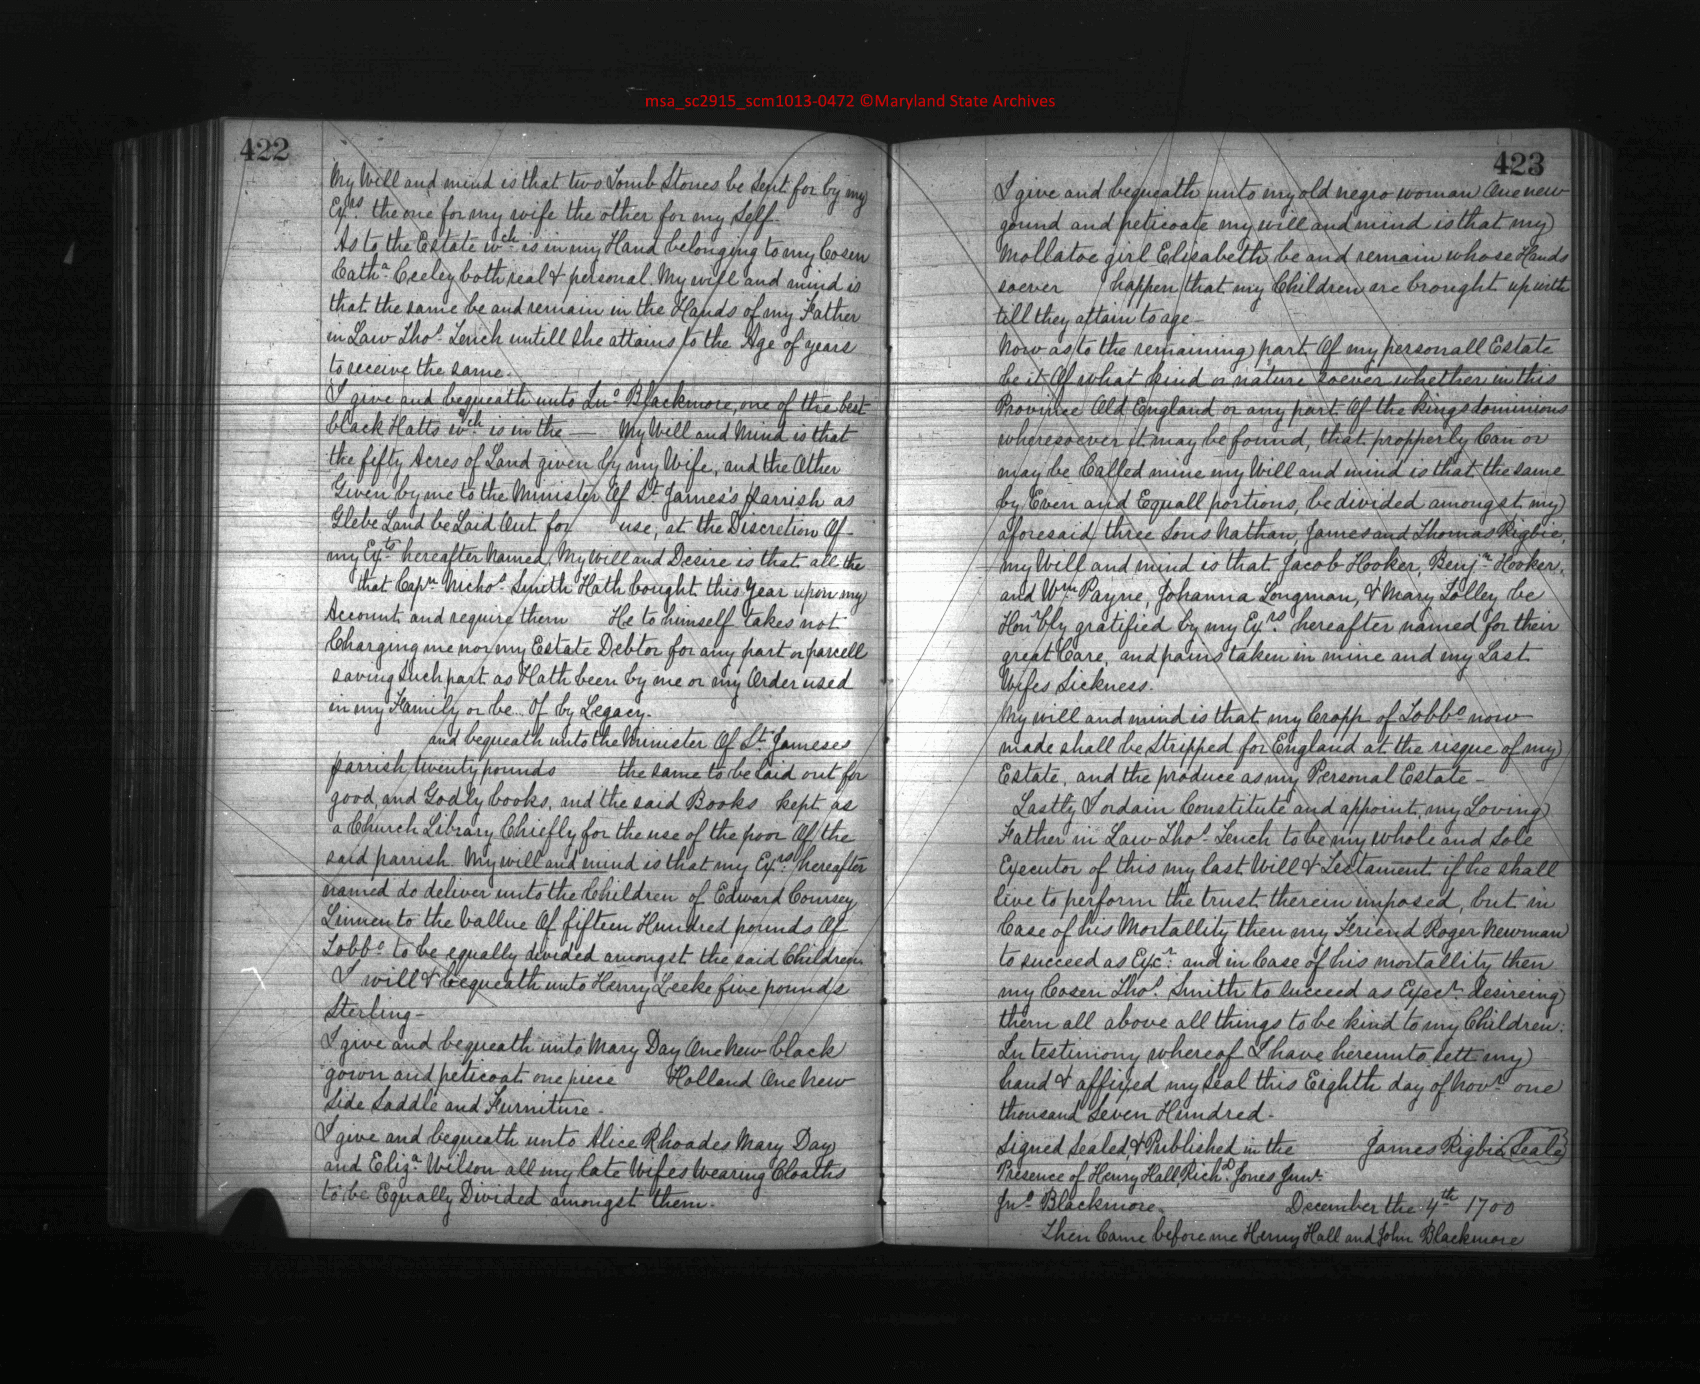 msa_sc2915_scm1013-0472 ©Maryland State Archives
422
My Will and mind is that two Tomb Stones be Sent for by my
Exrs the one for my wife the other for my Self.
As to the Estate wch is in my Hand belonging to my Cosen
Catha Ceeley both real & personal. My will and mind is
that the same be and remain in the Hands of my Father
in Law Thos Tench untill She attains to the Age of years
to receive the same.
I give and bequeath unto Jno Blackmore, one of the best
black Hatts wch is in the — My Will and Mind is that
the fifty Acres of Land given by my Wife, and the Other
Given by me to the Minister Of St James's parrish as
Glebe Land be Laid Out for use, at the Discretion Of
my Exts hereafter Named, My Will and Desire is that all the
that Capn Nichos Smith Hath bought this Year upon my
Account and require them He to himself takes not
Charging me nor my Estate Debtor for any part or parcell
saving Such part as Hath been by me or my Order used
in my Family or be Of by Legacy.
and bequeath unto the Minister Of St Jameses
parrish twenty pounds the same to be Laid out for
good, and Godly books, and the said Books kept as
a Church Library Chiefly for the use of the poor Of the
said parrish. My will and mind is that my Exrs hereafter
named do deliver unto the Children of Edward Coursey
Linnen to the Vallue Of fifteen Hundred pounds Of
Tobbo to be equally divided amongst the said Children.
I will & bequeath unto Henry Leeke five pounds
Sterling-
I give and bequeath unto Mary Day One New black
gown and peticoat one piece Holland One New
Side Saddle and Furniture.
I give and bequeath unto Alice Rhoades Mary Day
and Eliza Wilson all my late Wifes Wearing Cloaths
to be Equally Divided amongst them.
423
I give and bequeath unto my old negro woman One new
gound and peticoate my will and mind is that my
Mollatoe girl Elisabeth be and remain whose Hands
soever happen that my Children are brought up with
till they attain to age-
Now as to the remaining part Of my personall Estate
be it Of what kind or nature soever whether in this
Province Old England or any part Of the kings dominions
wheresoever it may be found, that propperly Can or
may be Called mine my Will and mind is that the same
by Even and Equall portions, be divided amongst my
aforesaid three Sons Nathan, James and Thomas Rigbie,
My Will and mind is that Jacob Hooker, Benjn Hooker,
and Wm Payne, Johanna Longman, & Mary Tolley be
Honrbly gratified by my Exrs hereafter named for their
great Care, and pains taken in mine and my Last
Wifes Sickness.
My will and mind is that my Cropp of Tobbo now
made shall be Stripped for England at the risque of my
Estate, and the produce as my Personal Estate-
Lastly I ordain Constitute and appoint, my Loving
Father in Law Thos Tench to be my whole and Sole
Executor of this my last Will & Testament if he shall
live to perform the trust therein imposed, but in
Case of his Mortallity then my Friend Roger Newman
to succeed as Excr and in Case of his mortallity then
my Cosen Thos Smith to succeed as Execr desireing
them all above all things to be kind to my Children.
In testimony whereof I have hereunto sett my
hand & affixed my Seal this Eighth day of Novr one
thousand Seven Hundred.
Signed Sealed & Published in the James Rigbie Seale
Presence of Henry Hall, Richd Jones Junr
Jno Blackmore. December the 4th 1700
Then Came before me Henry Hall and John Blackmore